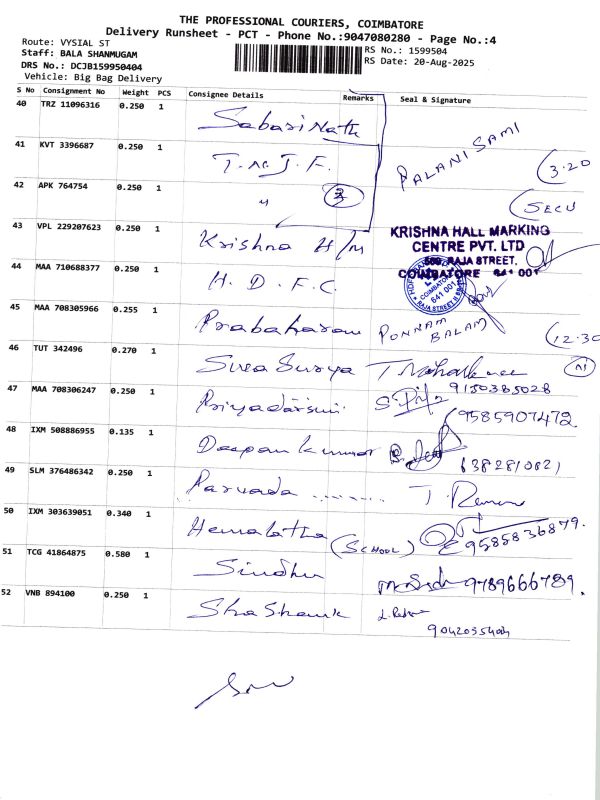 THE PROFESSIONAL COURIERS, COIMBATORE
Delivery Runsheet - PCT - Phone No.:9047080280 - Page No.:4
Route: VYSIAL ST
Staff: BALA SHANMUGAM
DRS No.: DCJB159950404
Vehicle: Big Bag Delivery
RS No.: 1599504
RS Date: 20-Aug-2025
S No Consignment No Weight PCS Consignee Details Remarks Seal & Signature
40 TRZ 11096316 0.250 1 Sabari Nath PALANISAMI
41 KVT 3396687 0.250 1 T.M.J.F. 3.20
42 APK 764754 0.250 1 " 2 (SECU
43 VPL 229207623 0.250 1 Krishna H/M
KRISHNA HALL MARKING
CENTRE PVT. LTD
509, RAJA STREET,
COIMBATORE 641 001
44 MAA 710688377 0.250 1 H.D.F.C.
45 MAA 708305966 0.255 1 Prabakaran PONNAM BALAM (12.30
46 TUT 342496 0.270 1 Surya
9150385028
47 MAA 708306247 0.250 1 Priyadarsini 9585907472
48 IXM 508886955 0.135 1 Deepan kumar
49 SLM 376486342 0.250 1 T. Raman
50 IXM 303639051 0.340 1 Hemalatha (SCHOOL) 9585836879.
51 TCG 41864875 0.580 1 Sindhu 9789666789.
52 VNB 894100 0.250 1 Shashank